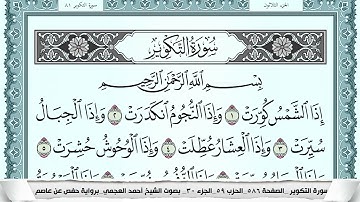 سورة التكوير ٨١
الجزء الثلاثون
سُورَةُ التَّكْوِيرِ
بِسْمِ اللَّهِ الرَّحْمَٰنِ الرَّحِيمِ
إِذَا الشَّمْسُ كُوِّرَتْ ١ وَإِذَا النُّجُومُ انكَدَرَتْ ٢ وَإِذَا الْجِبَالُ
سُيِّرَتْ ٣ وَإِذَا الْعِشَارُ عُطِّلَتْ ٤ وَإِذَا الْوُحُوشُ حُشِرَتْ ٥
سورة التكوير _ الصفحة ٥٨٦_ الحزب ٥٩_ الجزء ٣٠_ بصوت الشيخ أحمد العجمي_ برواية حفص عن عاصم